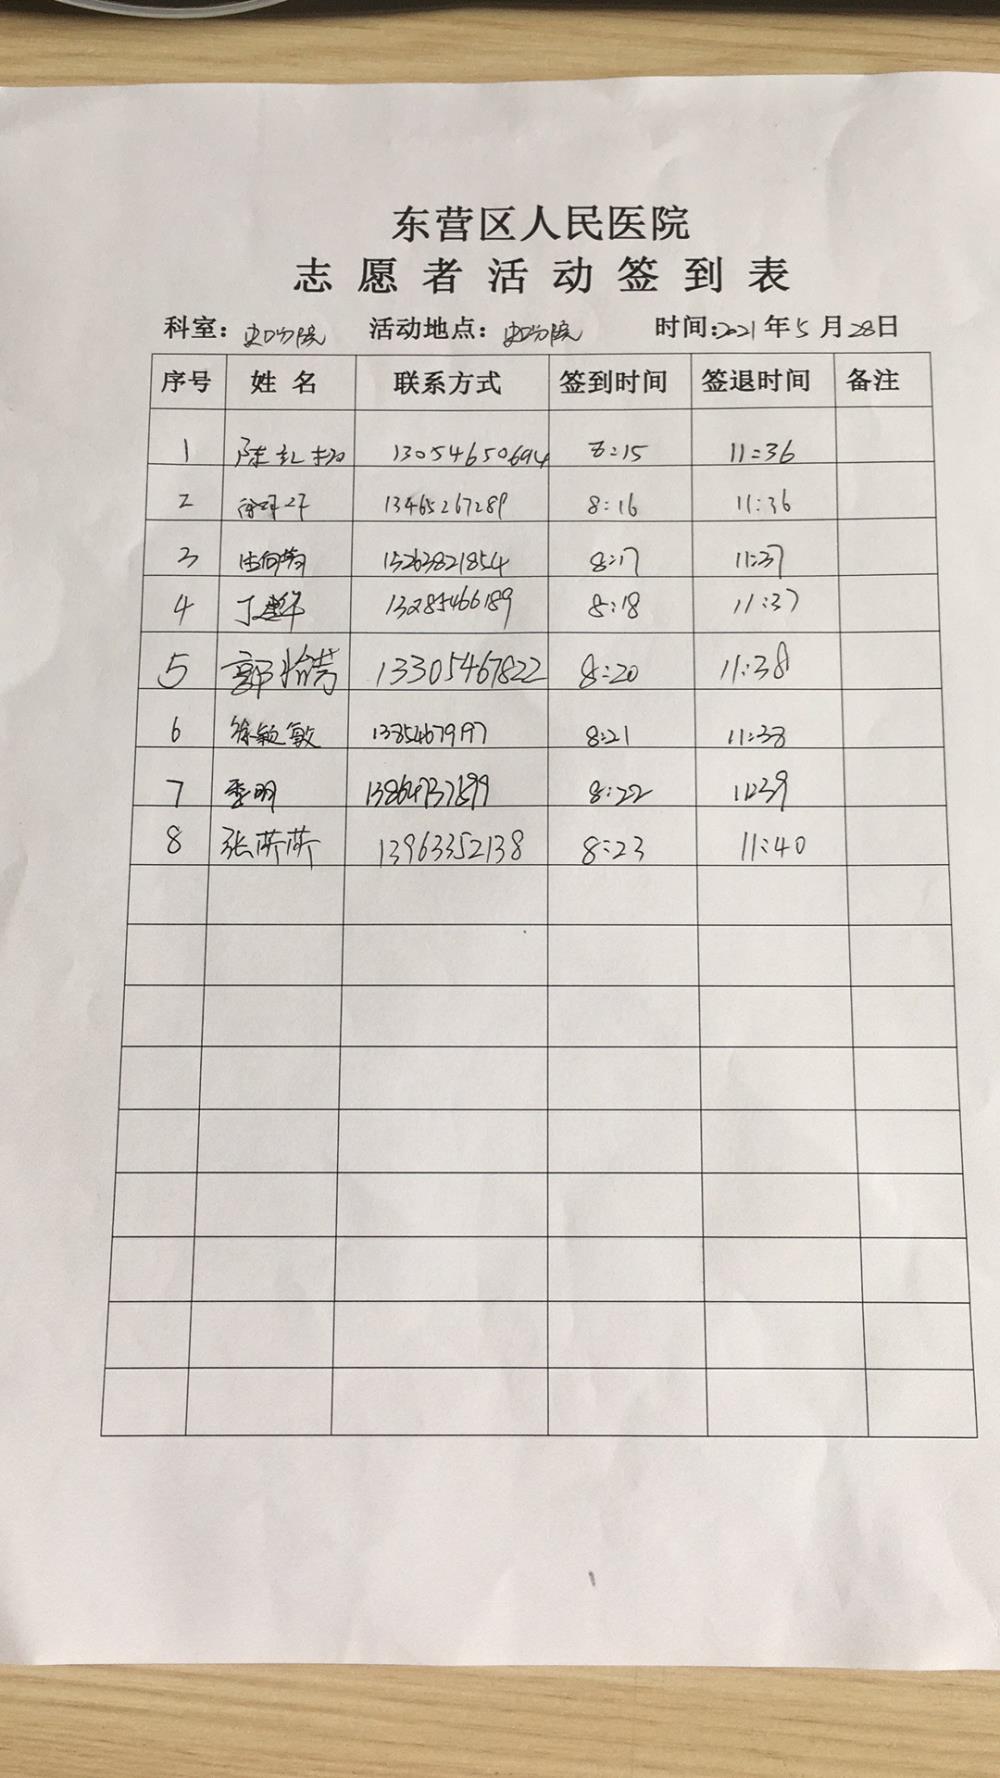 东营区人民医院
志愿者活动签到表
科室：史口分院 活动地点：史口分院 时间：2021年5月28日
序号 姓名 联系方式 签到时间 签退时间 备注
1 陈 13054650694 8:15 11:36
2 13465267289 8:16 11:36
3 15263821854 8:17 11:37
4 丁建华 13285466189 8:18 11:37
5 郭怡芳 13305467822 8:20 11:38
6 徐颖敏 8:21 11:38
7 季明 13864737599 8:22 11:39
8 张荞荞 13963352138 8:23 11:40